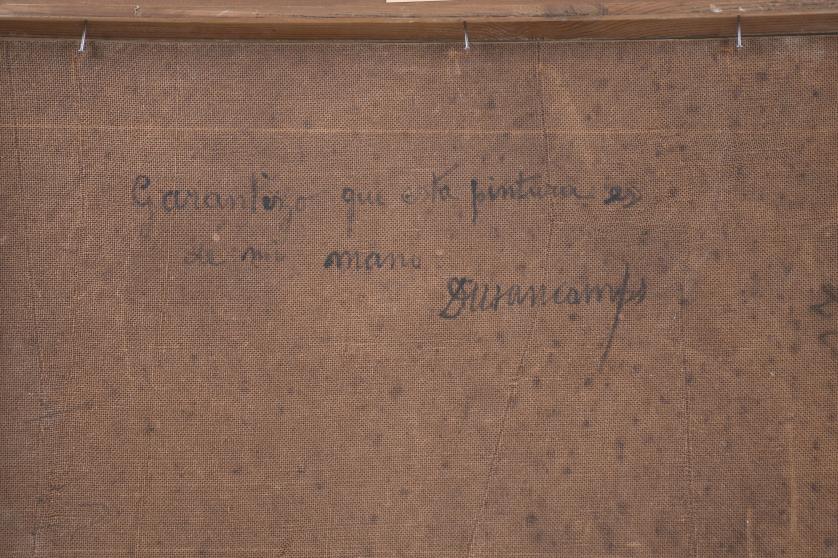 Garantizo que esta pintura es
de mi mano
Durancamps